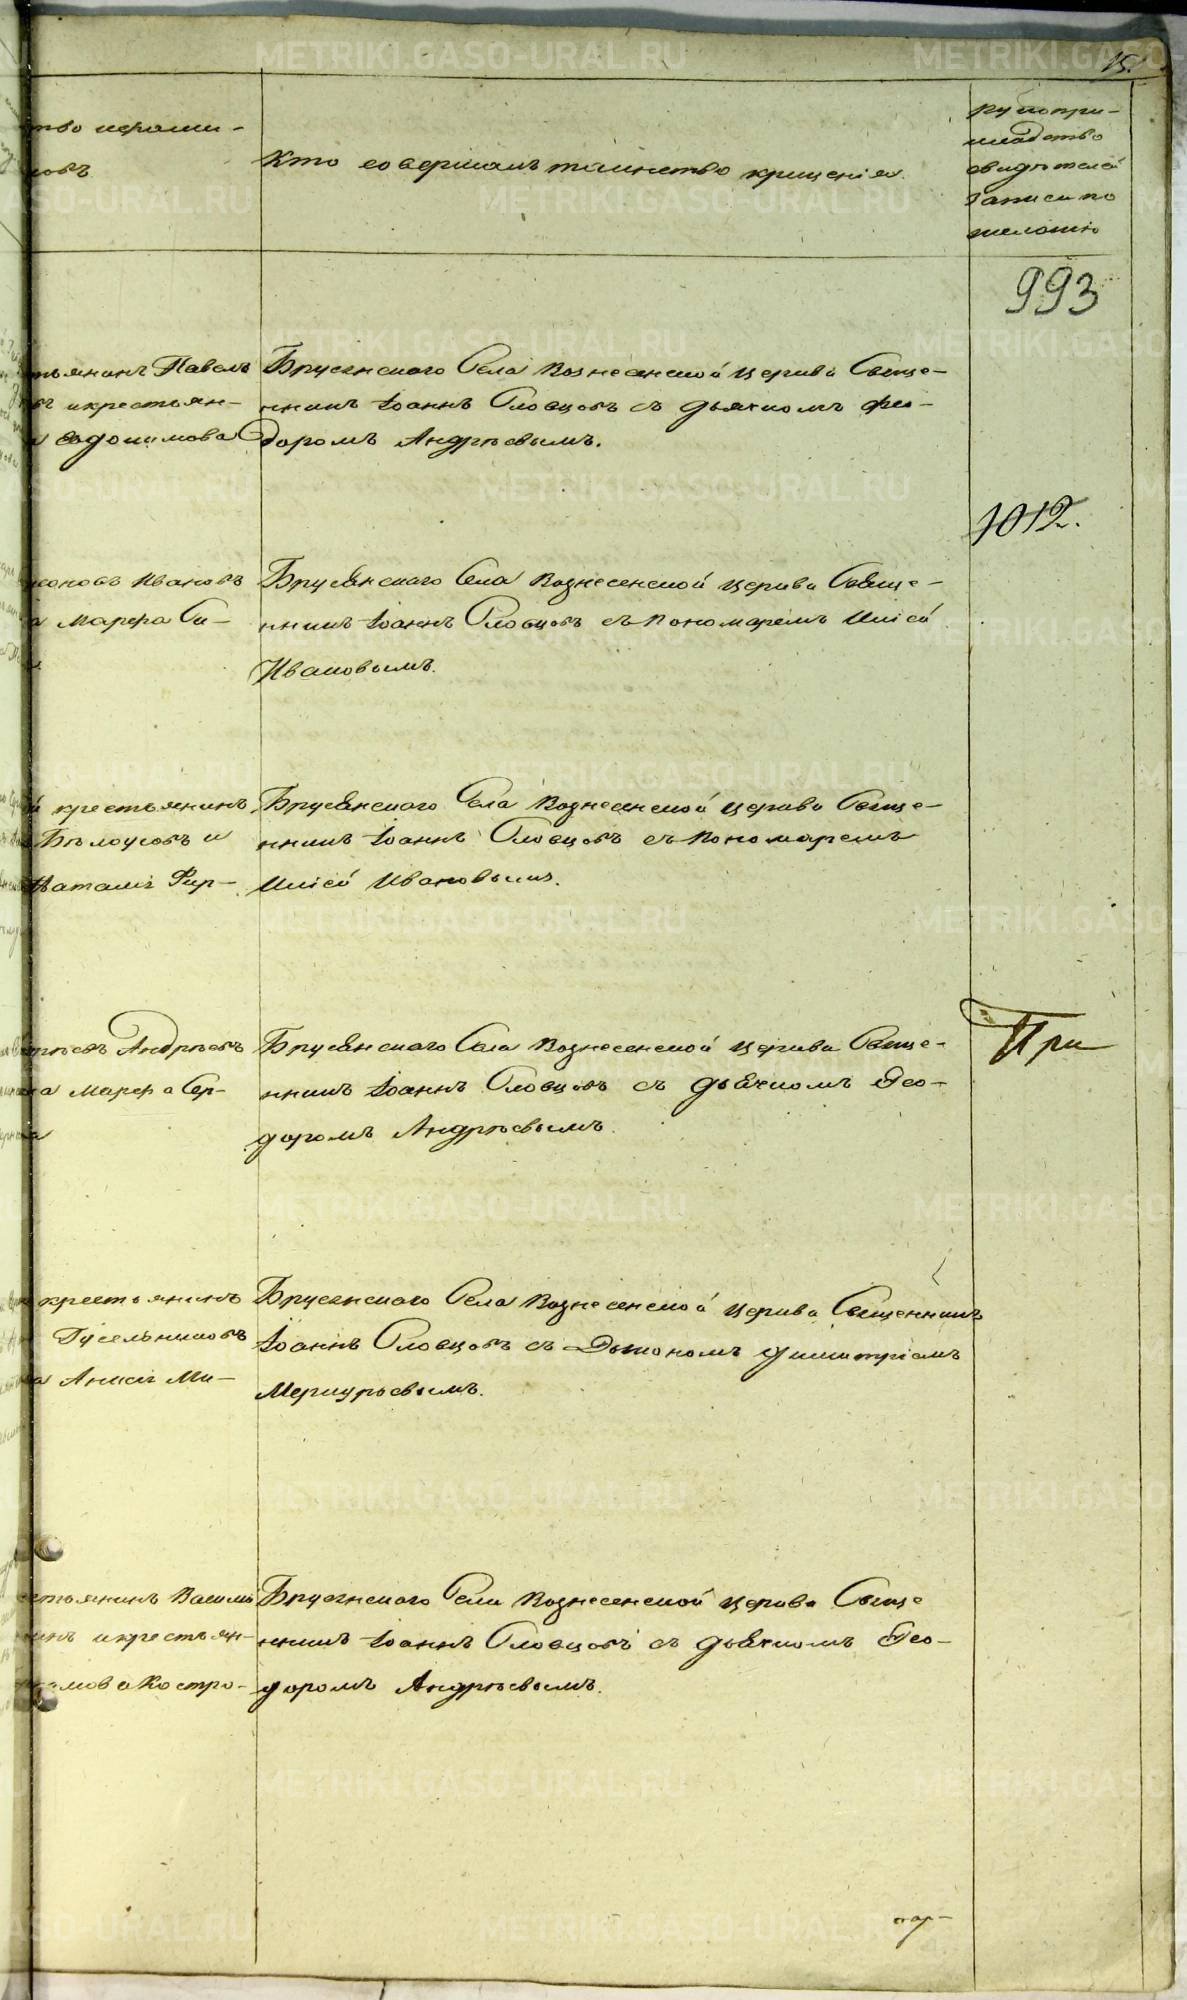 15.
тво иерами-
новъ
Кто совершалъ таинство крещенія.
Рукопри-
кладство
свидѣтелей
записи по
желанію
993
тьянинъ Павелъ
и крестьян-
Евдокимова
Брусянского Села Вознесенской церкви Свяще-
нникъ Іоаннъ Словцовъ съ дьячкомъ Фео-
доромъ Андрѣевымъ.
1012.
Ивановъ
Марфа Си-
Брусянского Села Вознесенской церкви Свяще-
нникъ Іоаннъ Словцовъ съ пономаремъ Иліей
Ивановымъ.
й крестьянинъ
Бѣлоусовъ и
Наталія Фир-
Брусянского Села Вознесенской церкви Свяще-
нникъ Іоаннъ Словцовъ съ пономаремъ
Иліей Ивановымъ.
Андрѣевъ
на Марфа Сер-
Брусянского Села Вознесенской церкви Свяще-
нникъ Іоаннъ Словцовъ съ дьячкомъ Фео-
доромъ Андрѣевымъ.
При
крестьянинъ
Гусельниковъ
Анисія Ми-
Брусянского Села Вознесенской церкви Священникъ
Іоаннъ Словцовъ съ Дьякономъ Димитріемъ
Меркурьевымъ.
стьянинъ Василій
инъ и крестьян-
Костро-
Брусянского Села Вознесенской церкви Свяще
нникъ Іоаннъ Словцовъ съ дьячкомъ Фео-
доромъ Андрѣевымъ.
METRIKI.GASO-URAL.RU